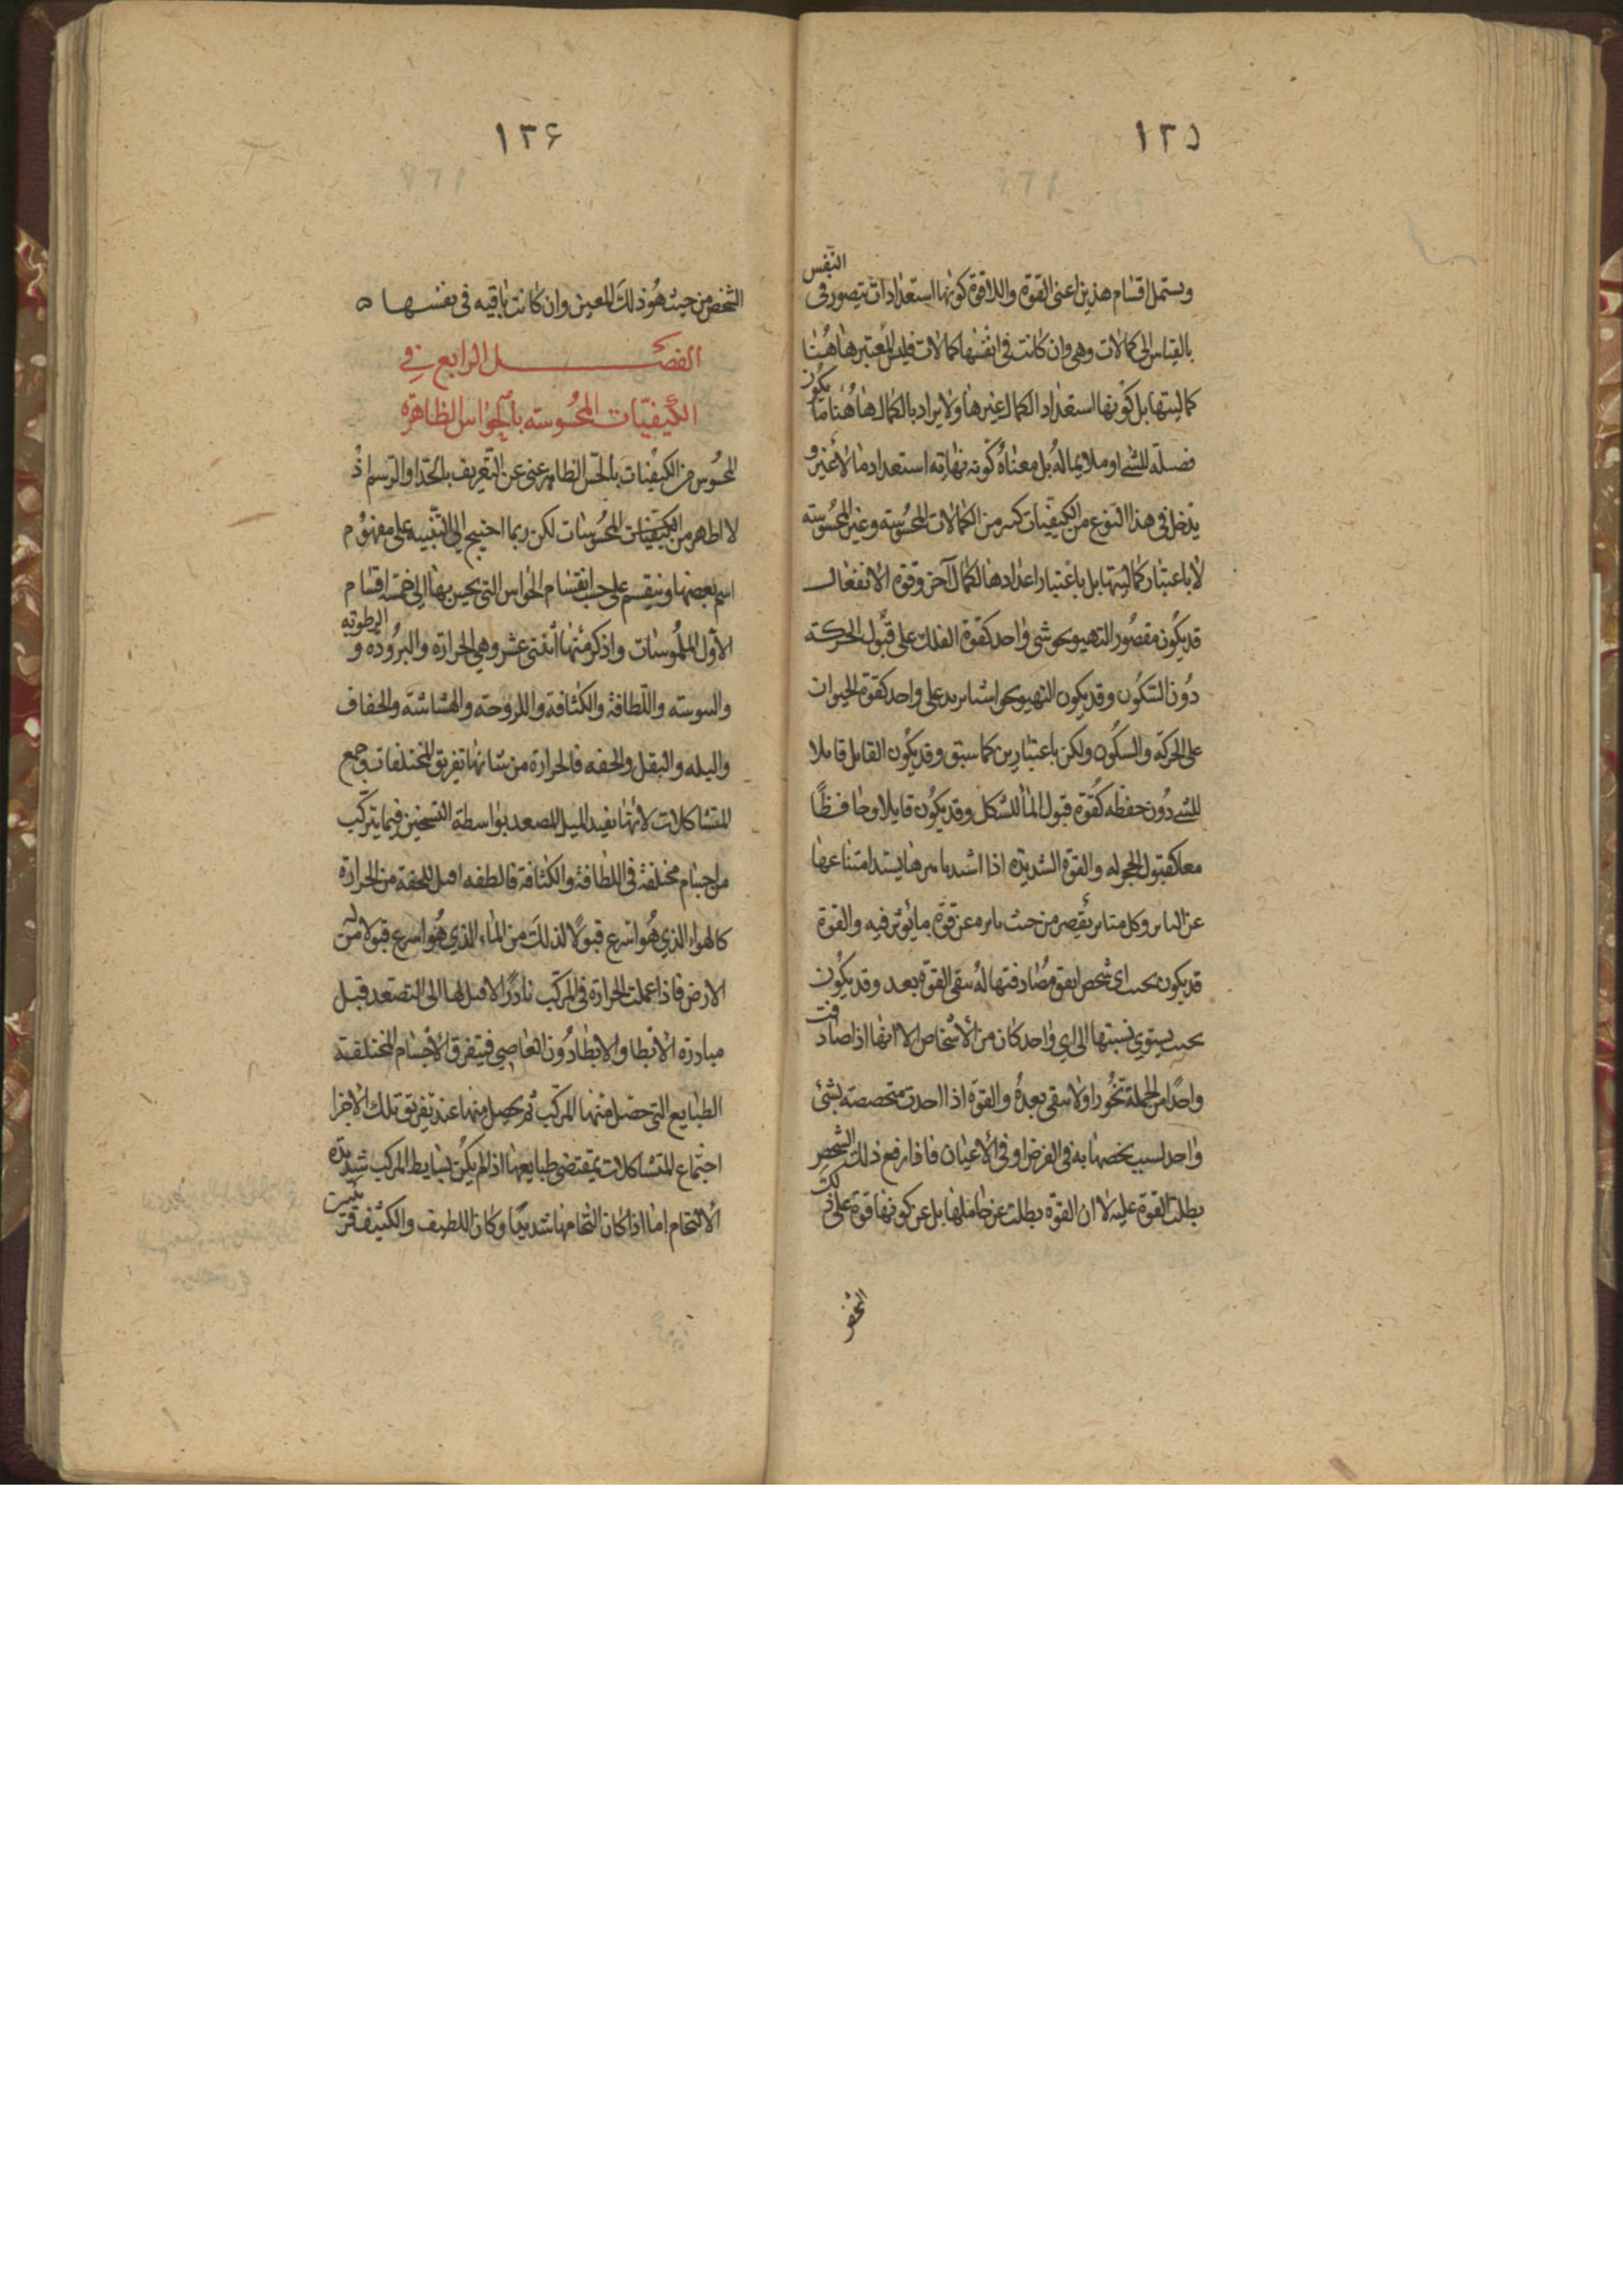 ١٢٥
ويشتمل اقسام هذين اعني القوة واللاقوة كونها استعدادات يتصور في النفس
بالقياس الى كمالات وهي وان كانت في انفسها كمالات فليس المعتبر هاهنا
كماليتها بل كونها استعداد الكمال غيرها ولا يراد بالكمال هاهنا ما يكون
فضيلة للشئ او ملايما له بل معناه كونه نهاية استعداد ما لا غير و
يدخل في هذا النوع من الكيفيات كثير من الكمالات المحسوسة وغير المحسوسة
لا باعتبار كماليتها بل باعتبار اعدادها لكمال آخر وقوة الانفعال
قد يكون مقصور التهيو نحو شئ واحد كقوة الفلك على قبول الحركة
دون السكون وقد يكون التهيو نحو اشيا يزيد على واحد كقوة الحيوان
على الحركة والسكون ولكن باعتبارين كما سبق وقد يكون القابل قابلا
للشئ دون حفظه كقوة قبول الماء للشكل وقد يكون قابلا وحافظا
معا كقبول الحجر له والقوة الشديدة اذا اشتد يشتد امتناعها
عن وكل يقصر من حيث عن قوة ما يؤثر فيه والقوة
قد يكون بحيث اي شخص اتفق مصادفتها له تبقى القوة بعد وقد يكون
بحيث يستوي نسبتها الى اي واحد كان من الاشخاص الا انها اذا صادفت
واحدا من الجملة ولا تبقى بعده والقوة اذا اخذت متخصصة بشئ
واحد لسبب يخصها به في الفرض او في الاعيان فاذا ارتفع ذلك الشخص
بطلت القوة عليه لا ان القوة بطلت عن حاملها بل عن كونها قوة على ذلك
الشخص
١٢٦
الشخص من حيث هو ذلك المعين وان كانت باقيه في نفسها ه
الفصل الرابع في
الكيفيات المحسوسه بالحواس الظاهرة
المحسوس من الكيفيات بالحس الظاهر غني عن التعريف بالحد او الرسم اذ
لا اظهر من الكيفيات المحسوسات لكن ربما احتيج الى التنبيه على مفهوم
اسم بعضها وينقسم على حسب انقسام الحواس التي يحس بها الى خمسة اقسام
الاول الملموسات واذكر منها اثنتي عشر وهي الحرارة والبرودة و الرطوبه
واليبوسه واللطافة والكثافة واللزوجة والهشاشة والجفاف
والبله والثقل والخفه فالحرارة من شانها تفريق المختلفات وجمع
المتشاكلات لانها تفيد الميل المصعد بواسطة التسخين فيما يتركب
من اجسام مختلفة في اللطافة والكثافة فالطفه اقبل للخفة من الحرارة
كالهواء الذي هو اسرع قبولا لذلك من الماء الذي هو اسرع قبولا له من
الارض فاذا عملت الحرارة في المركب بادر الاقبل لها الى التصعد قبل
مبادرة الابطا والابطا دون العاصي فيتفرق الاجسام المختلفة
الطبايع التي حصل منها المركب ثم يحصل منها عند تفريق تلك الاجزا
اجتماع المتشاكلات بمقتضى طبايعها اذا لم يكن بسايط المركب شديدة
الالتحام اما اذا كان التحامها شديدا وكان اللطيف والكثيف قريبين